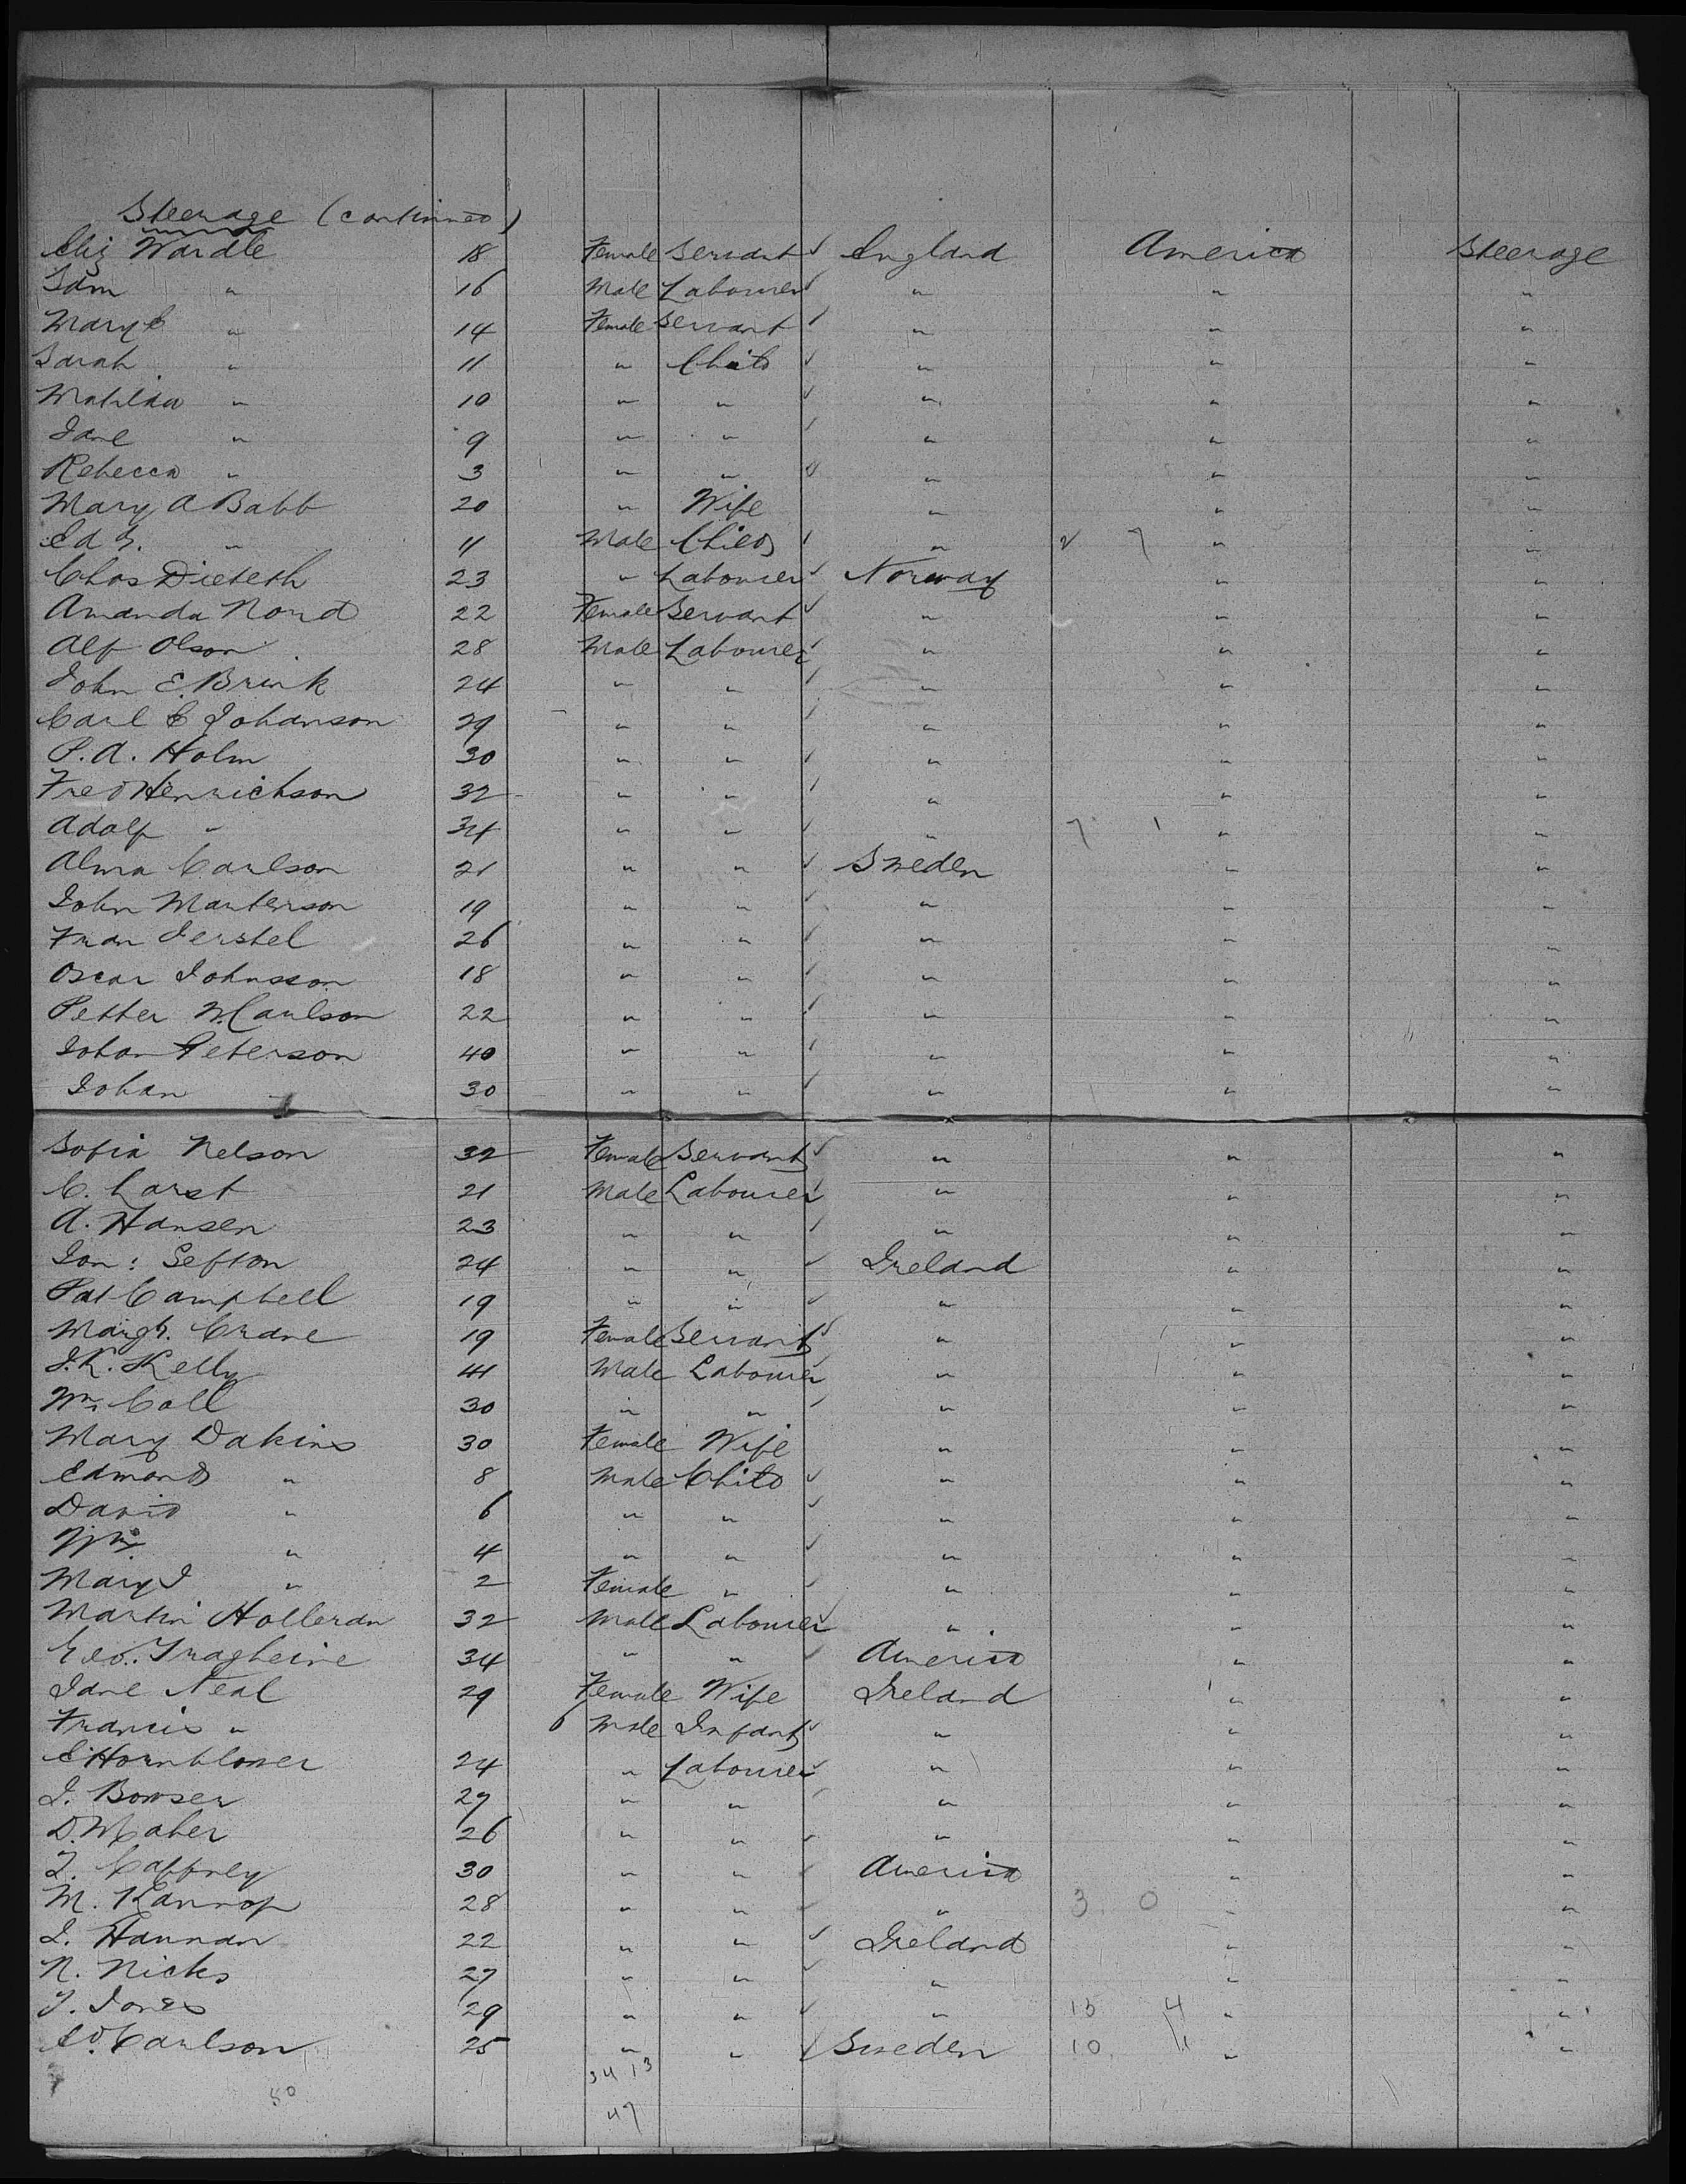 Steerage (continued)
Eliz Wardle 18 Female Servant ✓ England America Steerage
Saml " 16 Male Labourer ✓ " " "
Mary E " 14 Female Servant ✓ " " "
Sarah " 11 " Child ✓ " " "
Matilda " 10 " " ✓ " " "
Jane " 9 " " ✓ " " "
Rebecca " 3 " " ✓ " " "
Mary A Babb 20 " Wife " " "
Ed G. " 11 Male Child ✓ " 2 7 " "
Chas Dieteth 23 " Labourer ✓ Norway " "
Amanda Nord 22 Female Servant ✓ " " "
Alf Olson 28 Male Labourer ✓ " " "
John E. Brink 24 " " ✓ " " "
Carl E Johanson 29 " " ✓ " " "
P. A. Holm 30 " " ✓ " " "
Fred Henrichson 32 " " ✓ " " "
Adolf " 34 " " ✓ " 7 1 " "
Alma Carlson 21 " " ✓ Sweden " "
John Martenson 19 " " ✓ " " "
Fran Jerstel 26 " " ✓ " " "
Oscar Johnsson 18 " " ✓ " " "
Petter M. Carlson 22 " " ✓ " " "
Johan Peterson 40 " " ✓ " " "
Johan " 30 " " ✓ " " "
Sofia Nelson 32 Female Servant ✓ " " "
C. Larst 21 Male Labourer ✓ " " "
A. Hansen 23 " " ✓ " " "
Jon: Sefton 24 " " ✓ Ireland " "
Pat Campbell 19 " " ✓ " " "
Margt. Crane 19 Female Servant ✓ " " "
J. K. Kelly 41 Male Labourer ✓ " " "
Wm. Call 30 " " ✓ " " "
Mary Dakins 30 Female Wife " " "
Edmond " 8 Male Child ✓ " " "
David " 6 " " ✓ " " "
Wm. " 4 " " ✓ " " "
Mary J " 2 Female " ✓ " " "
Martin Holleran 32 Male Labourer ✓ " " "
Geo. Tragheine 34 " " ✓ America " "
Jane Neal 29 Female Wife Ireland " "
Francis " 6 Male Infant ✓ " " "
E Hornblower 24 " Labourer ✓ " " "
J. Bowser 27 " " ✓ " " "
D. Maher 26 " " ✓ " " "
T. Caffney 30 " " ✓ America " "
M. Kannop 28 " " ✓ " 3 0 " "
J. Hannan 22 " " ✓ Ireland " "
N. Nicks 27 " " ✓ " " "
T. Jones 29 " " ✓ " 15 4 " "
Ed. Carlson 25 " " ✓ Sweden 10 " "
34 13
50
47